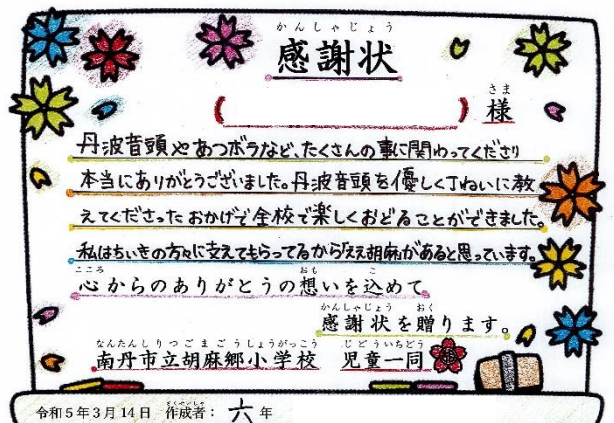 かんしゃじょう
感謝状
さま
( ) 様
丹波音頭やあつボラなど、たくさんの事に関わってくださり
本当にありがとうございました。丹波音頭を優しく丁ねいに教
えてくださったおかげで全校で楽しくおどることができました。
私はちいきの方々に支えてもらってるから「ええ胡麻」があると思っています。
こころ おも こ
心からのありがとうの想いを込めて
かんしゃじょう おく
感謝状を贈ります。
なんたんしりつごまごうしょうがっこう じどういちどう
南丹市立胡麻郷小学校 児童一同
さくせいしゃ
令和5年3月14日 作成者: 六年